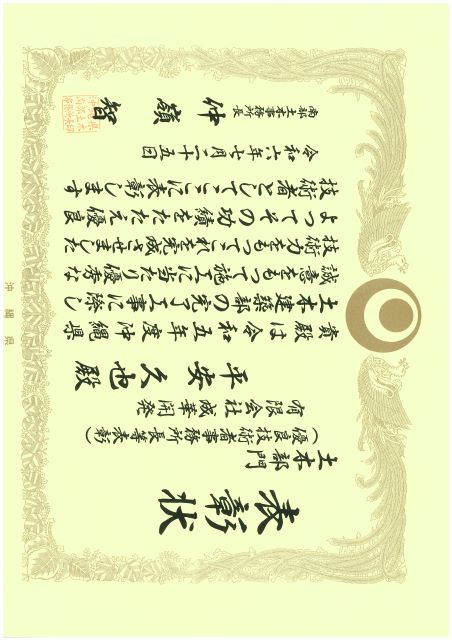 表彰状
土木部門
（優良技術者事務所長等表彰）
有限会社成華開発
平安久也殿
貴殿は令和五年度沖縄県
土木建築部の完了工事に際し
誠意をもって施工に当たり優秀な
技術力をもってこれを完成させました
よってその功績をたたえ優良
技術者としてここに表彰します
令和六年七月二十五日
南部土木事務所長
仲嶺智
沖縄県